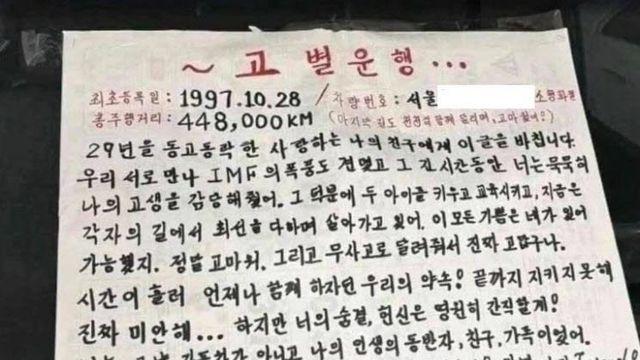 ~ 고별운행 ...
최초등록일 : 1997.10.28 / 차량번호 : 서울
총주행거리 : 448,000KM (마지막 길도 안전히 함께 달리며, 고마웠어!)
29년을 동고동락한 사랑하는 나의 친구에게 이글을 바칩니다.
우리 서로 만나 IMF의 폭풍도 견뎠고 그 긴시간동안 너는 묵묵히
나의 고생을 감당해줬어. 그 덕분에 두 아이를 키우고 교육시키고, 지금은
각자의 길에서 최선을 다하며 살아가고 있어. 이 모든 기쁨은 네가 있어
가능했지. 정말 고마워. 그리고 무사고로 달려줘서 진짜 고맙구나.
시간이 흘러 언제나 함께 하자던 우리의 약속! 끝까지 지키지 못해
진짜 미안해... 하지만 너의 숨결, 헌신은 영원히 간직할게!
자동차가 아니고 나의 인생의 동반자, 친구, 가족이었어.